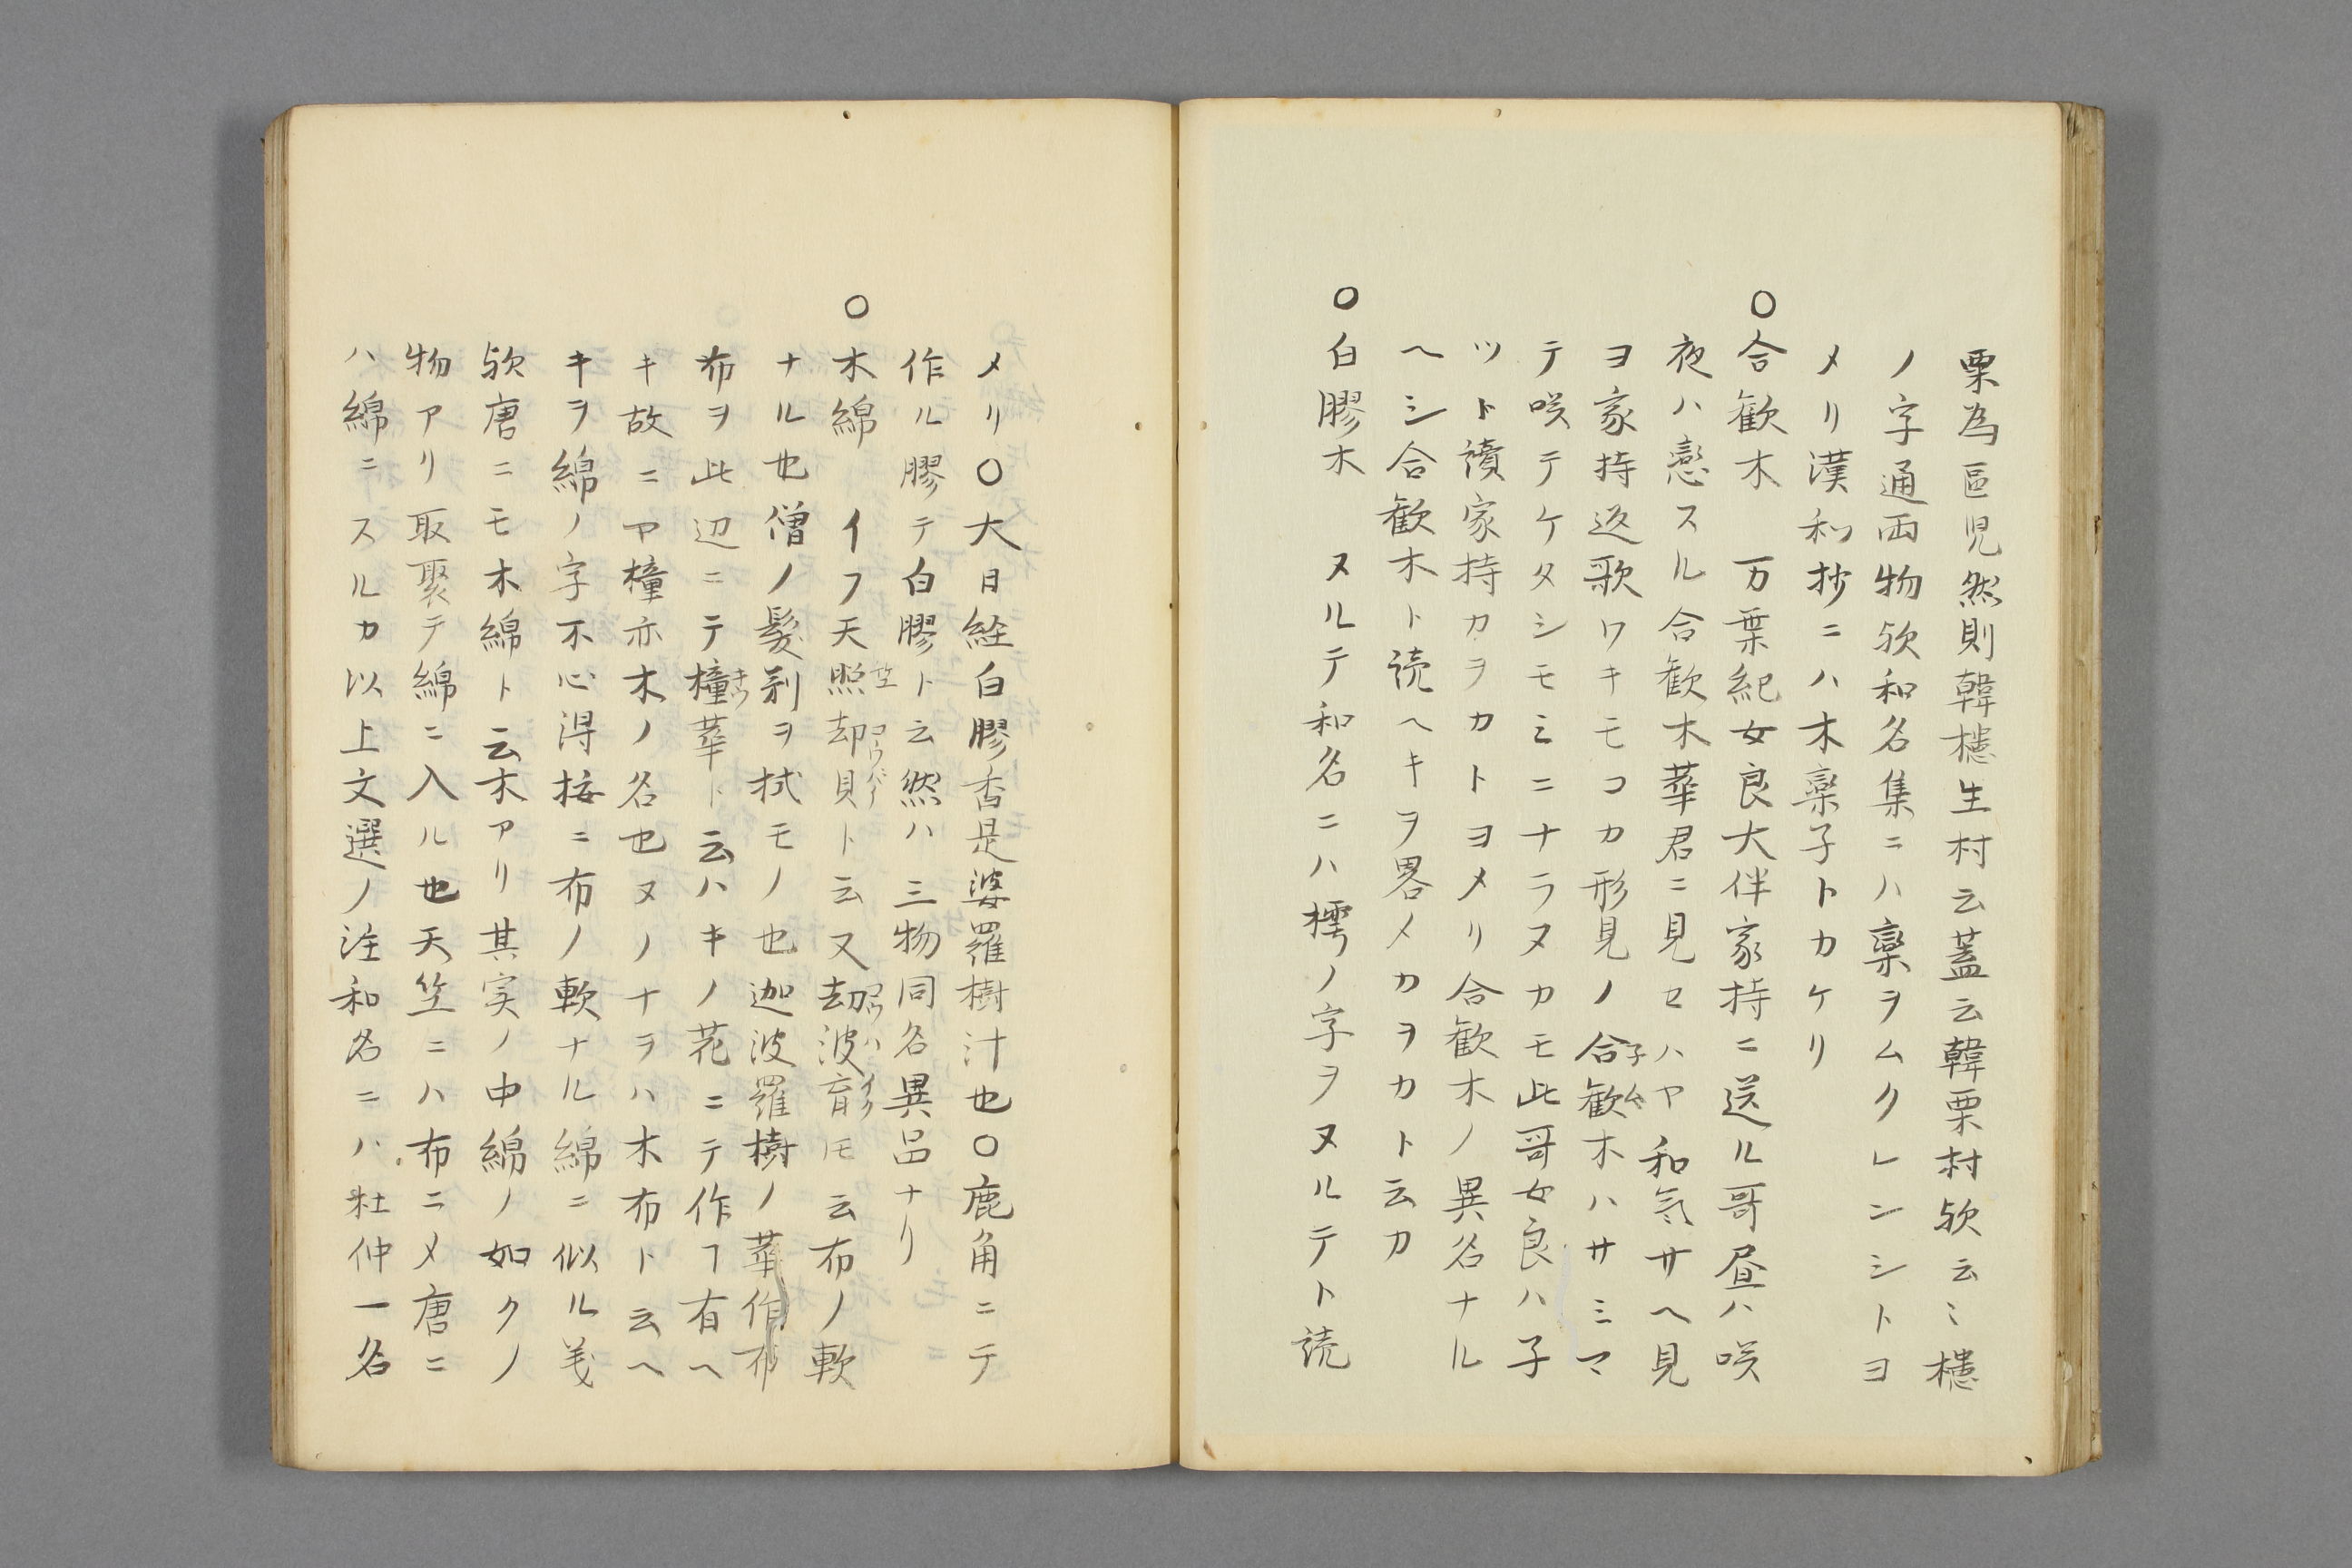 栗為區児然則韓櫘生村云蓋云韓栗村欤云〻櫘
ノ字通両物欤和名集ニハ薬ヲムクレンシトヨ
メリ漢和抄ニハ木欒子トカケリ
〇合歓木 万葉紀女良大伴家持ニ送ル哥昼ハ咲
夜ハ戀スル合歓木華君ニ見セハヤ和氣サヘ見
ヨ家持返歌ワキモコカ形見ノ合歓木ハサミマ
テ咲テケタシモミニナラヌカモ此哥女良ハ子
ツト讀家持カヲカトヨメリ合歓木ノ異名ナル
ヘシ合歓木ト読ヘキヲ畧メカヲカト云カ
〇白膠木 ヌルテ和名ニハ樗ノ字ヲヌルテト読
メリ〇大日経白膠香是婆羅樹汁也〇鹿角ニテ
作ル膠テ白膠ト云然ハ三物同名異品ナリ
〇木綿 イフ天照却貝ト云又劫波育モ云布ノ軟
ナル也僧ノ髪剃ヲ拭モノ也迦波羅樹ノ華作布
布ヲ此辺ニテ橦華ト云ハキノ花ニテ作ヿ有ヘ
キ故ニヤ橦亦木ノ名也ヌノナヲハ木布ト云ヘ
キヲ綿ノ字不心得按ニ布ノ軟ナル綿ニ似ル義
欤唐ニモ木綿ト云木アリ其実ノ中綿ノ如クノ
物アリ取聚テ綿ニ入ル也天竺ニハ布ニメ唐ニ
ハ綿ニスルカ以上文選ノ注和名ニハ杜仲一名